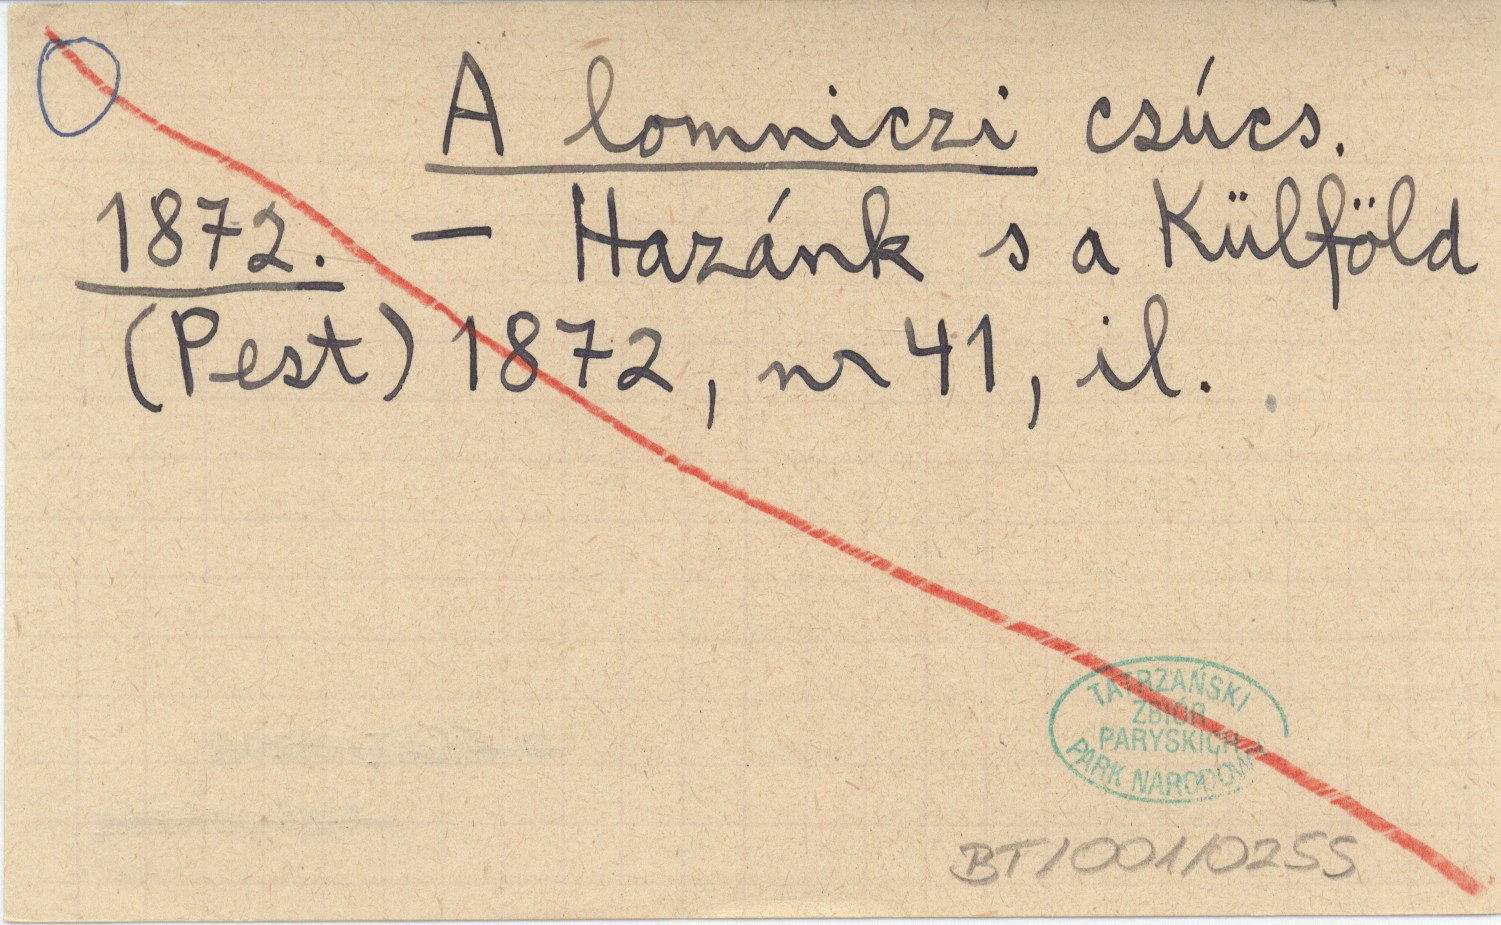 A lomniczi csúcs.
1872. — Hazánk s a Külföld
(Pest) 1872, nr 41, il.
TATRZAŃSKI
ZBIÓR
PARYSKICH
PARK NARODOWY
BT/001/0255